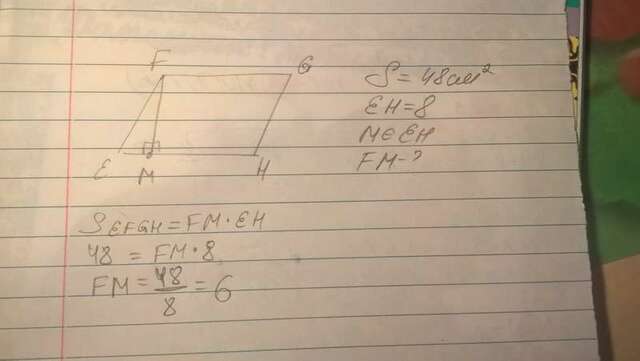 F G
E M H
S = 48см²
EH = 8
M ∈ EH
FM - ?
S EFGH = FM · EH
48 = FM · 8
FM = 48/8 = 6